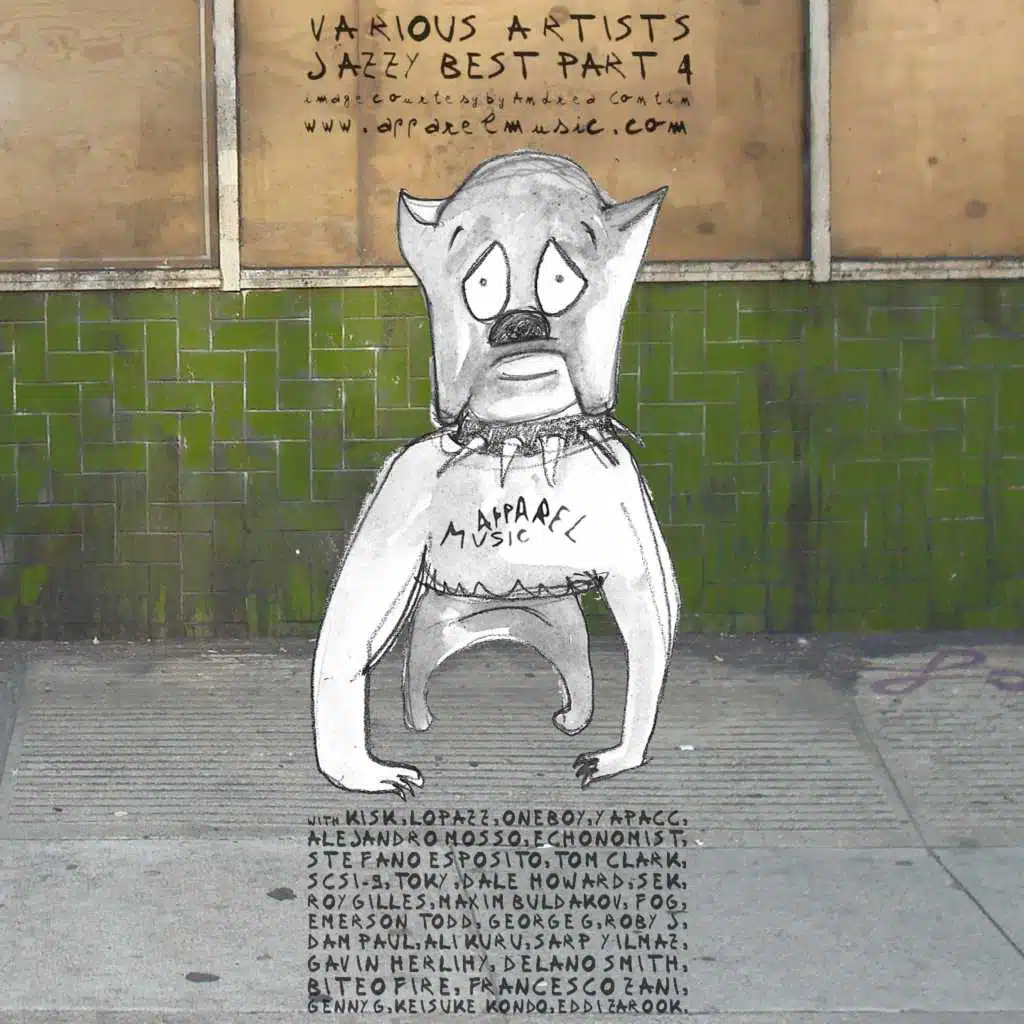 VARIOUS ARTISTS
JAZZY BEST PART 4
image courtesy by Andrea Comtin
www.apparelmusic.com
APPAREL
MUSIC
WITH KISK, LOPAZZ, ONEBOY, YAPACC,
ALEJANDRO MOSSO, ECHONOMIST,
STEFANO ESPOSITO, TOM CLARK,
SCSI-9, TOKY, DALE HOWARD, SEK,
ROY GILLES, MAXIM BULDAKOV, FOG,
EMERSON TODD, GEORGE G, ROBY J,
DAM PAUL, ALI KURU, SARP YILMAZ,
GAVIN HERLIHY, DELANO SMITH,
BITEO FIRE, FRANCESCO ZANI,
GENNY G, KEISUKE KONDO, EDDI ZAROOK.